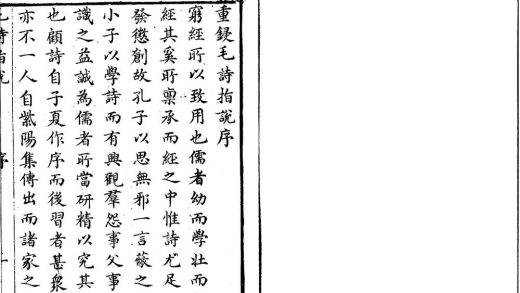 重鋟毛詩指說序
窮經所以致用也儒者幼而學壯而
經其奚所稟承而經之中惟詩尤足
發懲創故孔子以思無邪一言蔽之
小子以學詩而有興觀羣怨事父事
識之益誠為儒者所當研精以究其
也顧詩自子夏作序而後習者甚衆
亦不一人自紫陽集傳出而諸家之
毛詩指說
序
一